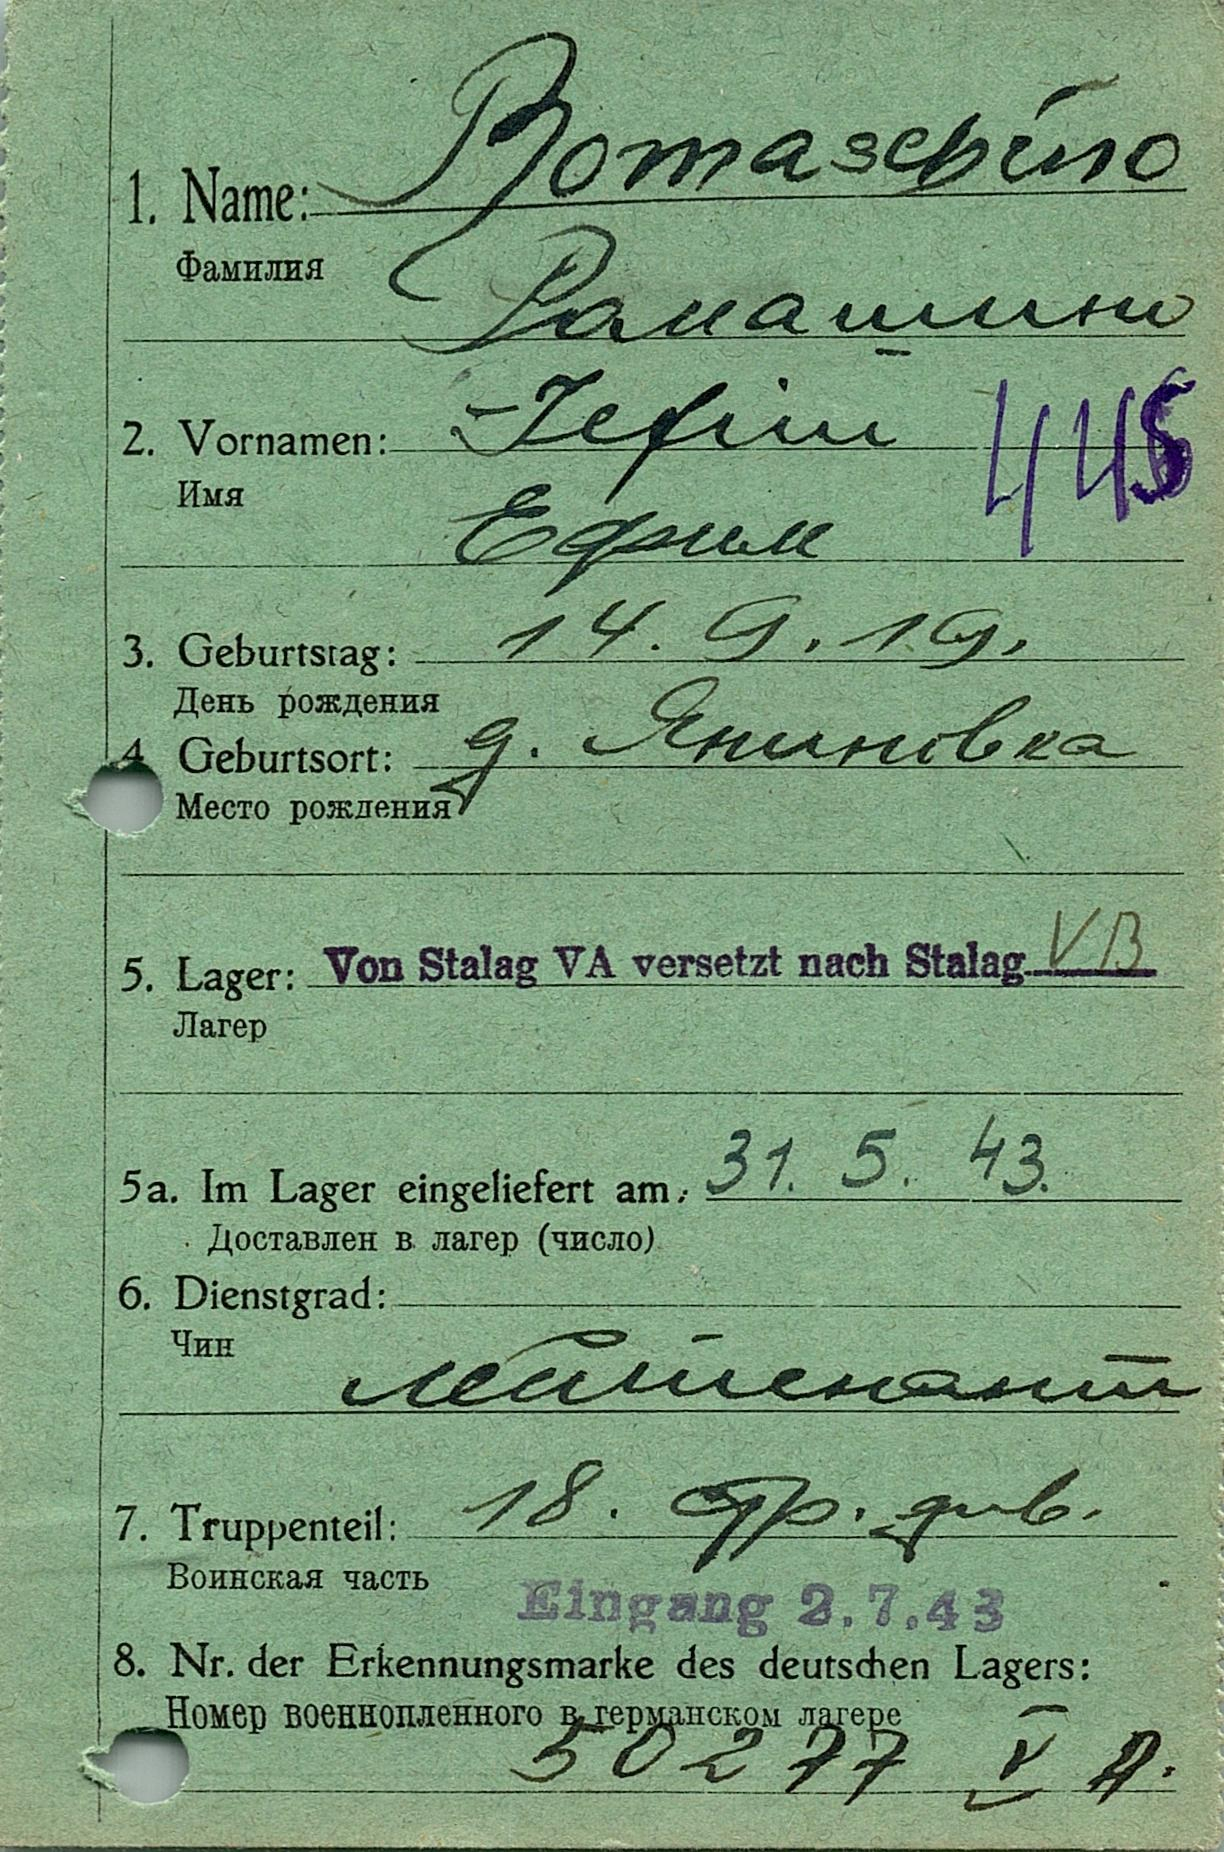 1. Name: Romaschino
Фамилия
Ромашино
2. Vornamen: Jefim
Имя
445
Ефим
3. Geburtstag: 14. 9. 19.
День рождения
4 Geburtsort: д. Яниновка
Место рождения
5. Lager: Von Stalag VA versetzt nach Stalag VB
Лагер
5a. Im Lager eingeliefert am: 31. 5. 43.
Доставлен в лагер (число)
6. Dienstgrad:
Чин
лейтенант
7. Truppenteil: 18. стр. див.
Воинская часть
Eingang 2.7.43
8. Nr. der Erkennungsmarke des deutschen Lagers:
Номер военнопленного в германском лагере
50277 V A.